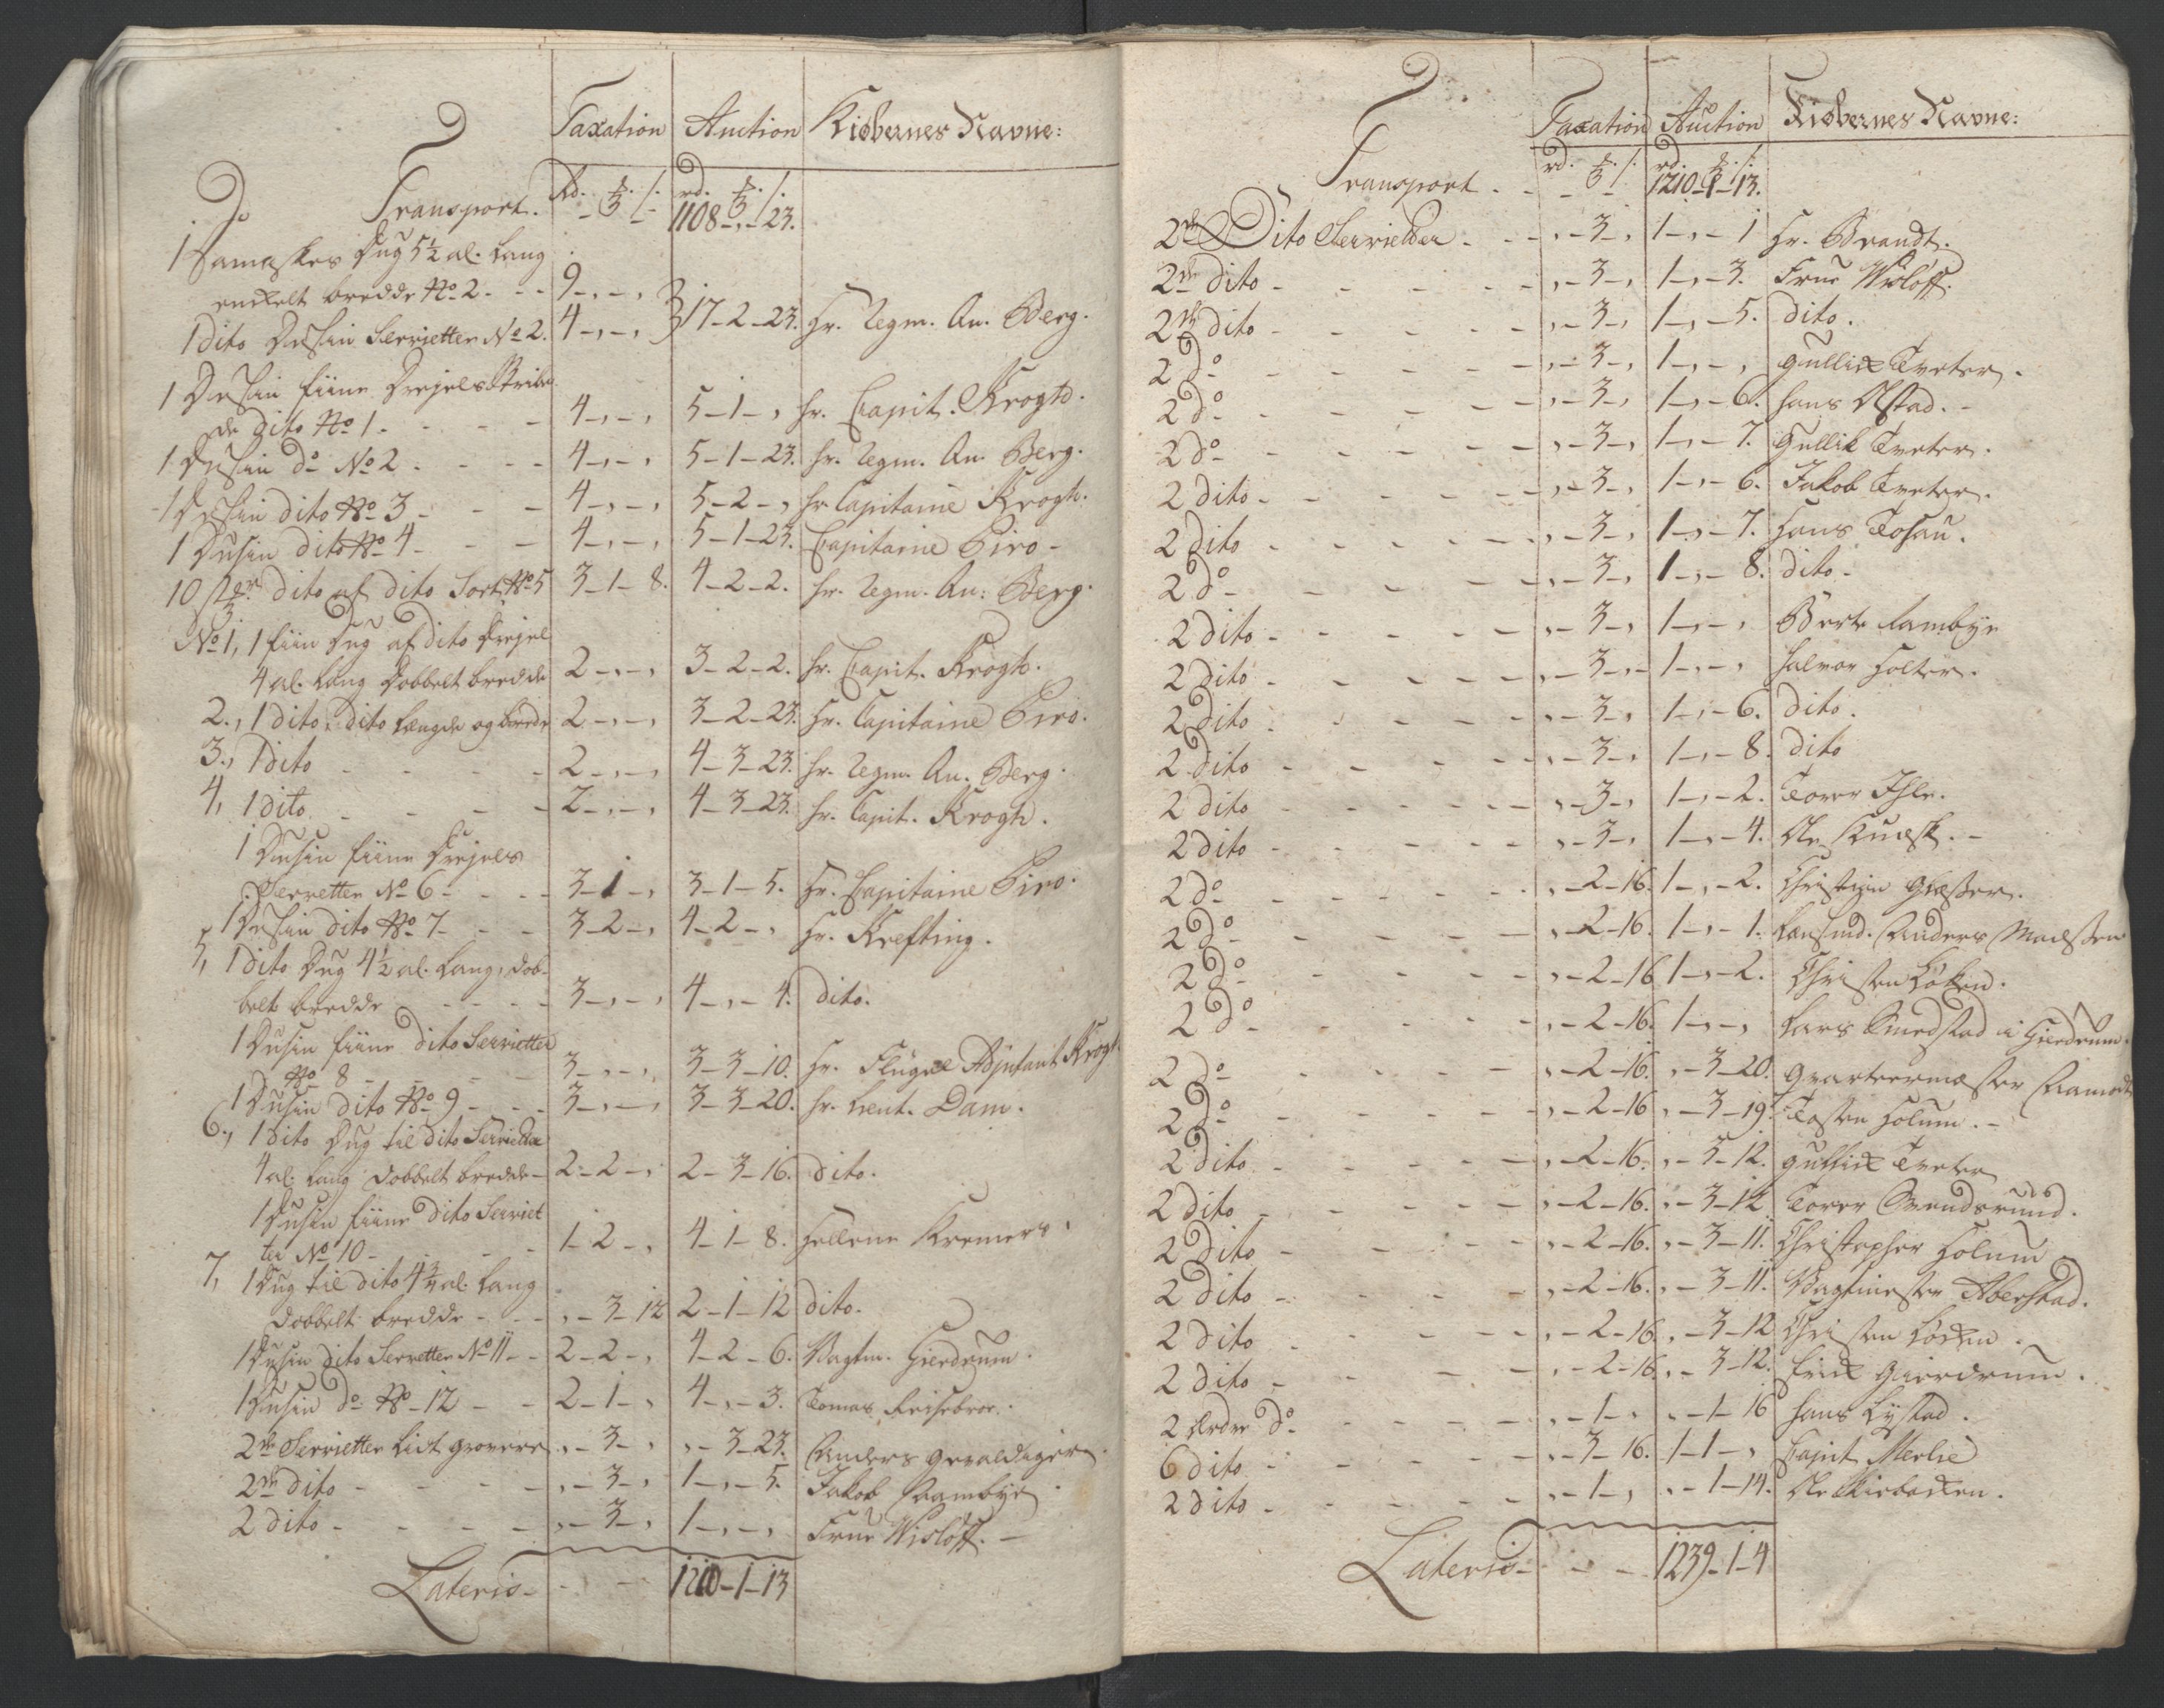 Taxation Auction Kiøbernes Navne:
Transport. Rd. ℔. s. rd. ℔. s.
1108 - „ - 23.
1 Damaskes Dug 5½ al. lang
enkelt bredde No 2. - - 9 - „ - „
1 dito Dusin Servietter No 2. 4 - „ - „ 17 - 2 - 23. Hr. Regm. Qu. Berg.
1 Dusin fiine Drejels Stribe
de dito No 1 - - - 4 - „ - „ 5 - 1 - „ Hr. Capit. Krogh.
1 Dusin do No 2 - - - 4 - „ - „ 5 - 1 - 23. Hr. Regm. Qu. Berg.
1 Dusin dito No 3 - - - 4 - „ - „ 5 - 2 - „ Hr Capitaine Krogh.
1 Dusin dito No 4 - - - 4 - „ - „ 5 - 1 - 23. Capitaine Piro -
10 st. dito af dito Sort No 5 3 - 1 - 8. 4 - 2 - 2. Hr. Regm. Qu: Berg.
No 1, 1 fiin Dug af dito Drejel
4 al. lang Dobbelt bredde 2 - „ - „ 3 - 2 - 2. Hr. Capit. Krogh.
2., 1 dito, dito længde og brede 2 - „ - „ 3 - 2 - 23. Hr. Capitaine Piro.
3., 1 dito - - - 2 - „ - „ 4 - 3 - 23. Hr. Regm. Qu. Berg.
4, 1 dito - - - 2 - „ - „ 4 - 3 - 23. Hr. Capit. Krogh.
1 Dusin fiine Drejels
Servetter No 6 - - - 3 - 1 - „ 3 - 1 - 5. Hr. Capitaine Piro.
1 Dusin dito No 7 - - - 3 - 2 - „ 4 - 2 - „ Hr. Krefting.
5, 1 dito Dug 4½ al. lang, dob-
belt bredde - - - - 3 - „ - „ 4 - „ - 4. dito.
1 Dusin fiine dito Servietter
No 8 - - - - 3 - „ - „ 3 - 3 - 10. Hr. Flügel Adjutant Krogh
1 Dusin dito No 9 - - - 3 - „ - „ 3 - 3 - 20. Hr. Lieut. Dam.
6., 1 dito Dug til dito Servietter
4 al. lang dobbelt bredde - 2 - 2 - „ 2 - 3 - 16. dito.
1 Dusin fiine dito Serviet
ter No 10 - - - 1 - 2 - „ 4 - 1 - 8. Hellene Kremers.
7, 1 Dug til dito 4¾ al. lang
dobbelt bredde - - - „ - 3 - 12 2 - 1 - 12 dito.
1 Dusin dito Servetter No 11 - - 2 - 2 - „ 4 - 2 - 6. Vagtm. Gierdrum.
1 Dusin do No - 12 - - 2 - 1 - „ 4 - „ - 3. Tomas
2 de Servietter lidt grovere „ - 3 - „ „ - 3 - 23. Anders Gevaldiger.
2 de dito - - - - „ - 3 - „ 1 - „ - 5. Jakob Rambye.
2 dito - - - - „ - 3 - „ 1 - „ - „ Frue Wisløff. -
Lateris - - - 1210 - 1 - 13
Taxation Auction Kiøbernes Navne:
rd. ℔. s. rd. ℔. s.
Transport. - - - 1210 - 1 - 13.
2 de Dito Servietter - - - „ - 3 - „ 1 - „ - 1 Hr. Brandt.
2 de dito - - - - „ - 3 - „ 1 - „ - 3. Frue Wisløff.
2 de dito - - - - „ - 3 - „ 1 - „ - 5. dito.
2 do - - - - „ - 3 - „ 1 - „ - „ Gullik Tveter.
2 do - - - - „ - 3 - „ 1 - „ - 6. Hans Olstad. -
2 do - - - - „ - 3 - „ 1 - „ - 7. Gullik Tveter.
2 dito - - - - „ - 3 - „ 1 - „ - 6. Jakob Tveter.
2 dito - - - - „ - 3 - „ 1 - „ - 7. Hans Tosau.
2 do - - - - „ - 3 - „ 1 - „ - 8. dito -
2 dito - - - - „ - 3 - „ 1 - „ - „ Berte Rambye
2 dito - - - - „ - 3 - „ 1 - „ - „ Halvor Holter.
2 dito - - - - „ - 3 - „ 1 - „ - 6. dito.
2 dito - - - - „ - 3 - „ 1 - „ - 8. dito
2 dito - - - - „ - 3 - „ 1 - „ - 2. Torer Ihle.
2 dito - - - - „ - 3 - „ 1 - „ - 4. Ole -
2 do - - - - „ - 2 - 16. 1 - „ - 2. Christian Glæsser.
2 do - - - - „ - 2 - 16. 1 - „ - 1. Lensmd. Anders Madssen
2 do - - - - „ - 2 - 16 1 - „ - 2. Christen Løken.
2 do - - - - „ - 2 - 16. 1 - „ - „ Lars Smedstad i Gierdrum.
2 do - - - - „ - 2 - 16. „ - 3 - 20. Qvarteermæster Aamodt
2 do - - - - „ - 2 - 16 „ - 3 - 19. Tosten Holum. -
2 dito - - - - „ - 2 - 16. „ - 3 - 12. Gullik Tveter
2 dito - - - - „ - 2 - 16. „ - 3 - 12 Torer Svendsrud.
2 dito - - - - „ - 2 - 16. „ - 3 - 11. Christopher Holum
2 dito - - - - „ - 2 - 16. „ - 3 - 11. Vagtmester Aberstad.
2 dito - - - - „ - 2 - 16. „ - 3 - 12 Christen Løken.
2 dito - - - - „ - 2 - 16 „ - 3 - 12. Erik Gierdrum.
2 Ordre do - - - - „ - 1 - „ „ - 1 - 16 Hans Lystad.
6 dito - - - - „ - 3 - 16. 1 - 1 - „ Capit Merlie
2 dito - - - - „ - 1 - „ „ - 1 - 14. Ole Kirbakken.
Lateris - - - 1239 - 1 - 4